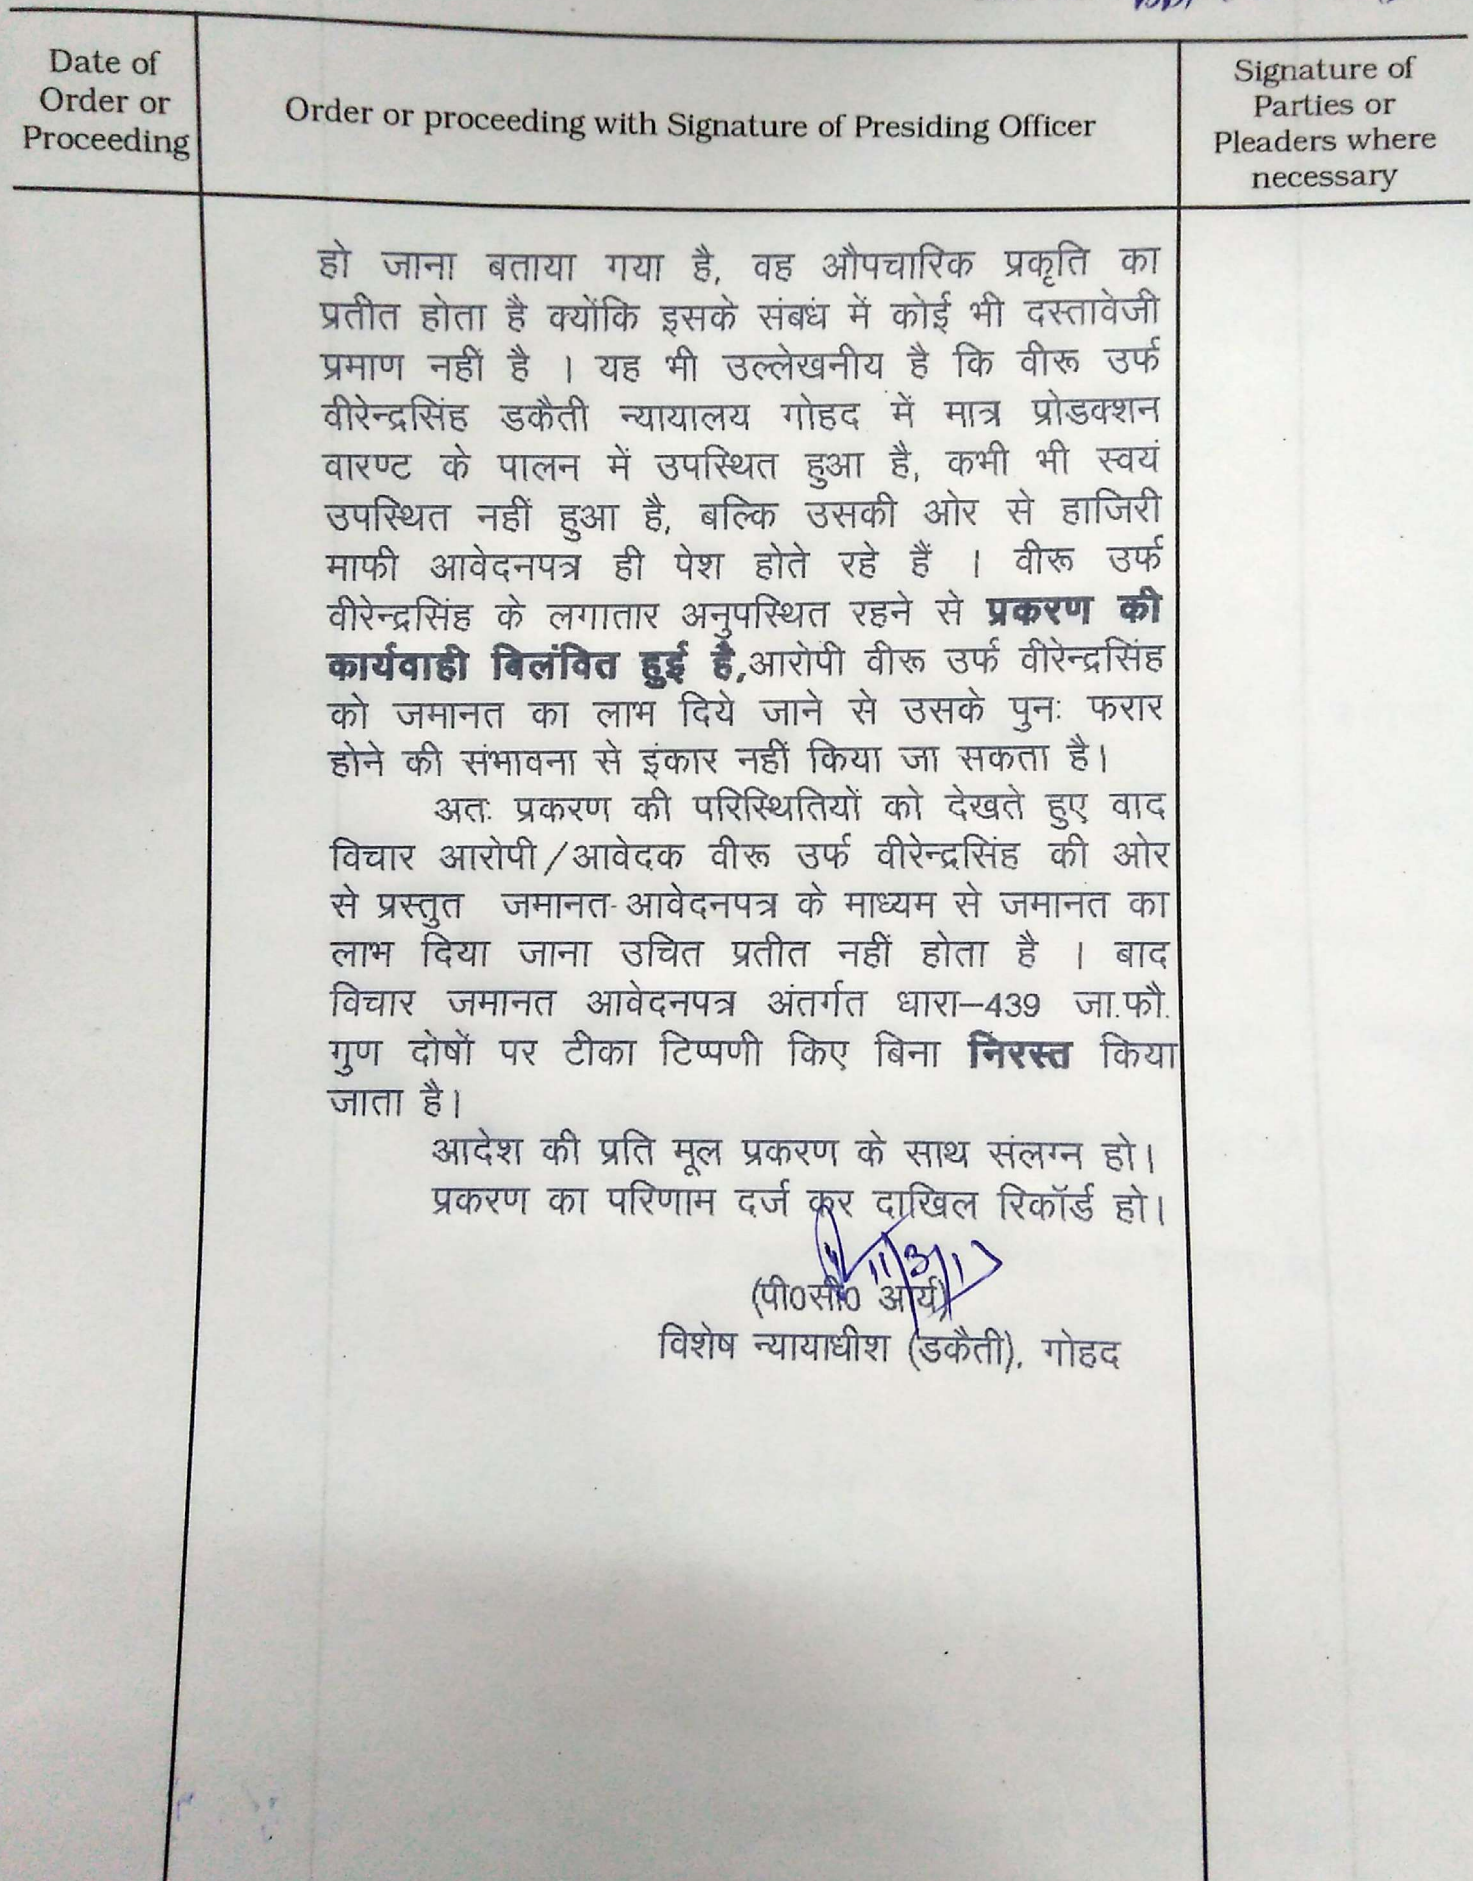 Date of
Order or
Proceeding
Order or proceeding with Signature of Presiding Officer
Signature of
Parties or
Pleaders where
necessary
हो जाना बताया गया है, वह औपचारिक प्रकृति का
प्रतीत होता है क्योंकि इसके संबधं में कोई भी दस्तावेजी
प्रमाण नहीं है । यह भी उल्लेखनीय है कि वीरू उर्फ
वीरेन्द्रसिंह डकैती न्यायालय गोहद में मात्र प्रोडक्शन
वारण्ट के पालन में उपस्थित हुआ है, कभी भी स्वयं
उपस्थित नहीं हुआ है, बल्कि उसकी ओर से हाजिरी
माफी आवेदनपत्र ही पेश होते रहे हैं । वीरू उर्फ
वीरेन्द्रसिंह के लगातार अनुपस्थित रहने से प्रकरण की
कार्यवाही बिलंवित हुई है,आरोपी वीरू उर्फ वीरेन्द्रसिंह
को जमानत का लाभ दिये जाने से उसके पुनः फरार
होने की संभावना से इंकार नहीं किया जा सकता है।
अतः प्रकरण की परिस्थितियों को देखते हुए वाद
विचार आरोपी/आवेदक वीरू उर्फ वीरेन्द्रसिंह की ओर
से प्रस्तुत जमानत-आवेदनपत्र के माध्यम से जमानत का
लाभ दिया जाना उचित प्रतीत नहीं होता है । बाद
विचार जमानत आवेदनपत्र अंतर्गत धारा–439 जा.फौ.
गुण दोषों पर टीका टिप्पणी किए बिना निरस्त किया
जाता है।
आदेश की प्रति मूल प्रकरण के साथ संलग्न हो।
प्रकरण का परिणाम दर्ज कर दाखिल रिकॉर्ड हो।
11/3/17
(पी0सी0 आर्य)
विशेष न्यायाधीश (डकैती), गोहद